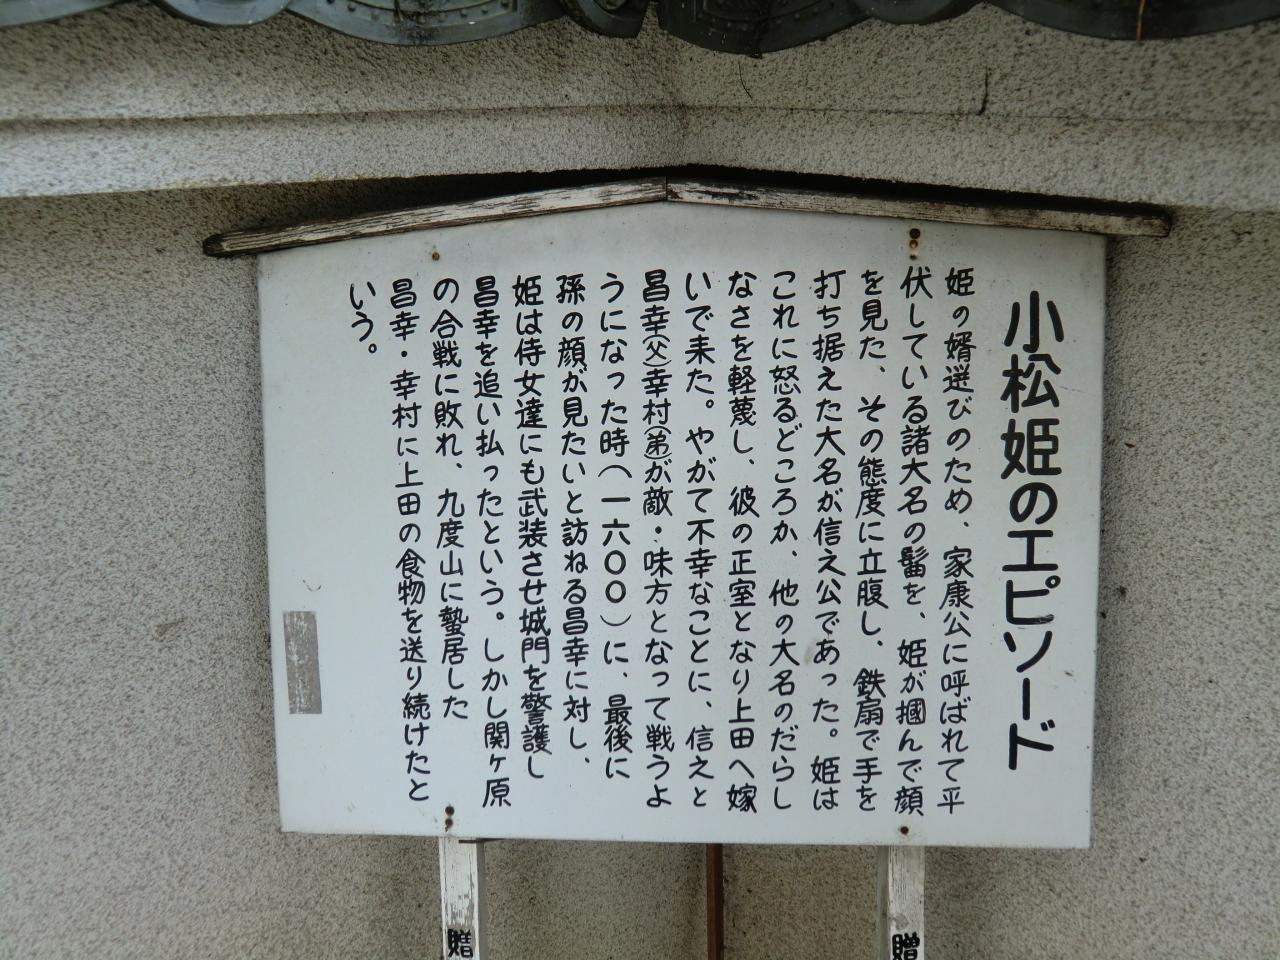 小松姫のエピソード
姫の婿選びのため、家康公に呼ばれて平
伏している諸大名の髷を、姫が摑んで顔
を見た、その態度に立腹し、鉄扇で手を
打ち据えた大名が信え公であった。姫は
これに怒るどころか、他の大名のだらし
なさを軽蔑し、彼の正室となり上田へ嫁
いで来た。やがて不幸なことに、信えと
昌幸(父)幸村(弟)が敵・味方となって戦うよ
うになった時(一六〇〇)に、最後に
孫の顔が見たいと訪ねる昌幸に対し、
姫は侍女達にも武装させ城門を警護し
昌幸を追い払ったという。しかし関ヶ原
の合戦に敗れ、九度山に蟄居した
昌幸・幸村に上田の食物を送り続けたと
いう。
贈
贈